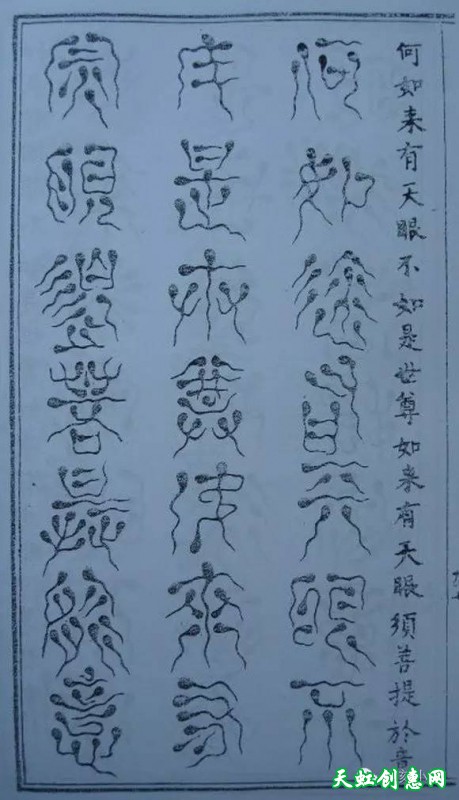 何如来有天眼不如是世尊如来有天眼須菩提於意
何如来有天眼不
如是世尊如来有
天眼須菩提於意
天虹创惠网